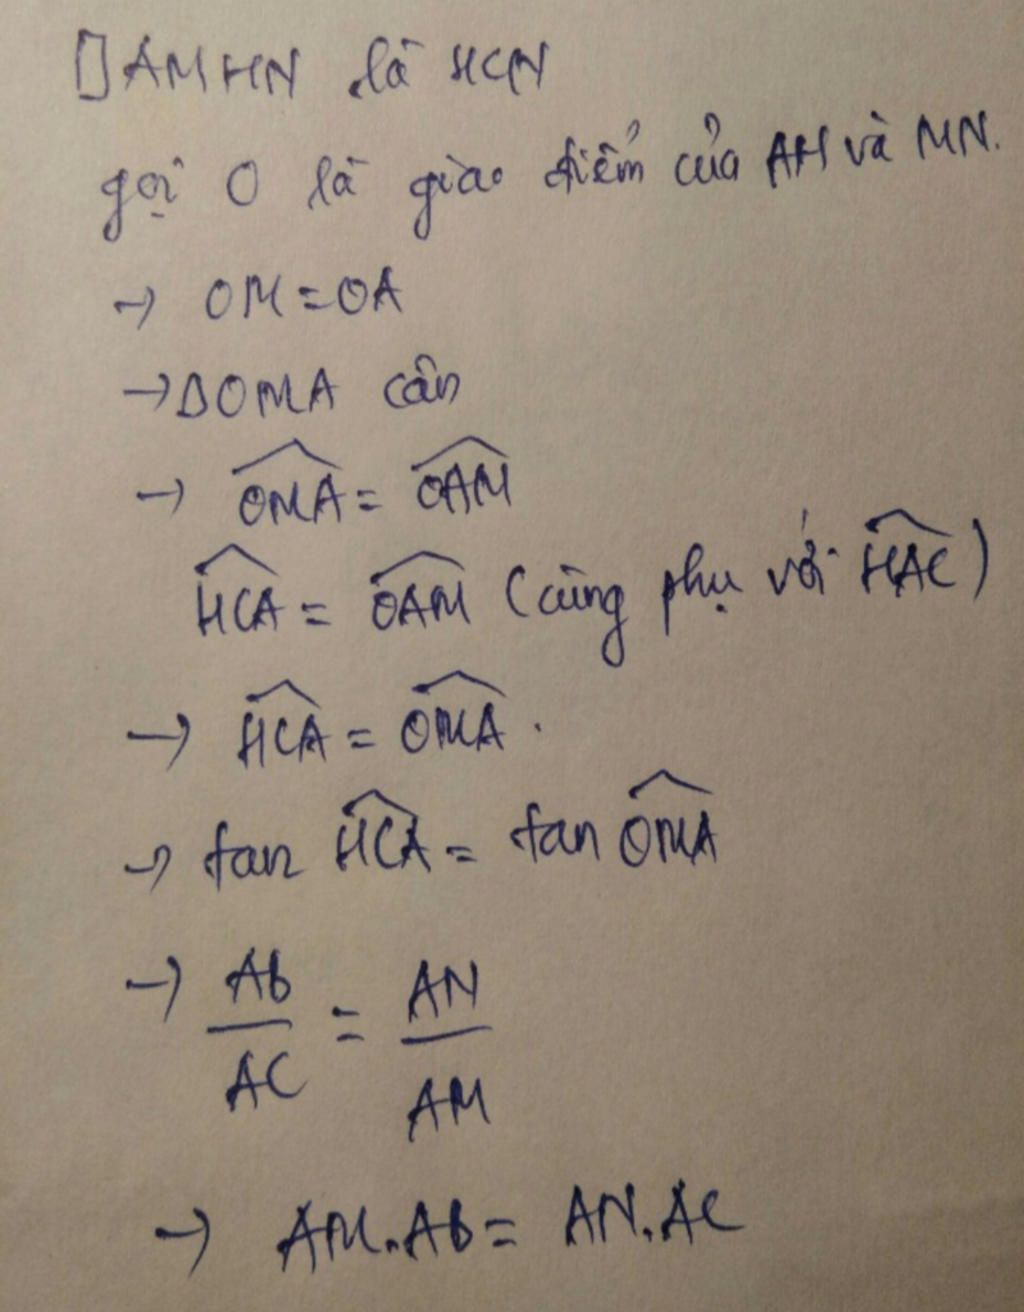 ▯AMHN là HCN
gọi O là giao điểm của AH và MN.
→ OM = OA
→ ΔOMA cân
→ \widehat{OMA} = \widehat{OAM}
\widehat{HCA} = \widehat{OAM} (cùng phụ với \widehat{HAC})
→ \widehat{HCA} = \widehat{OMA}.
→ tan \widehat{HCA} = tan \widehat{OMA}
→ \frac{Ab}{AC} = \frac{AN}{AM}
→ AM.Ab = AN.AC